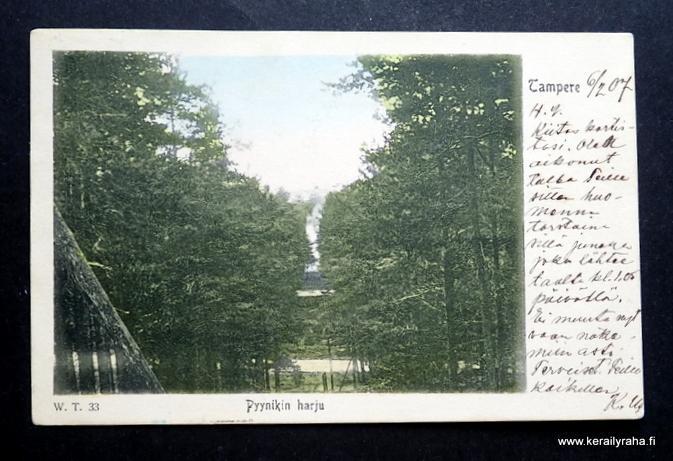 Tampere 6/2 07
H. Y.
Kiitos kortis-
tasi. Olen
aikonut
tulla Teille
sillon huo-
menna
torstaina
sillä junalla
joka lähtee
täältä kl. 1,05
päivällä.
Ei muuta nyt
vaan näke-
miin asti
Terveiset Teille
kaikille
W. T. 33
Pyynikin harju
www.kerailyraha.fi